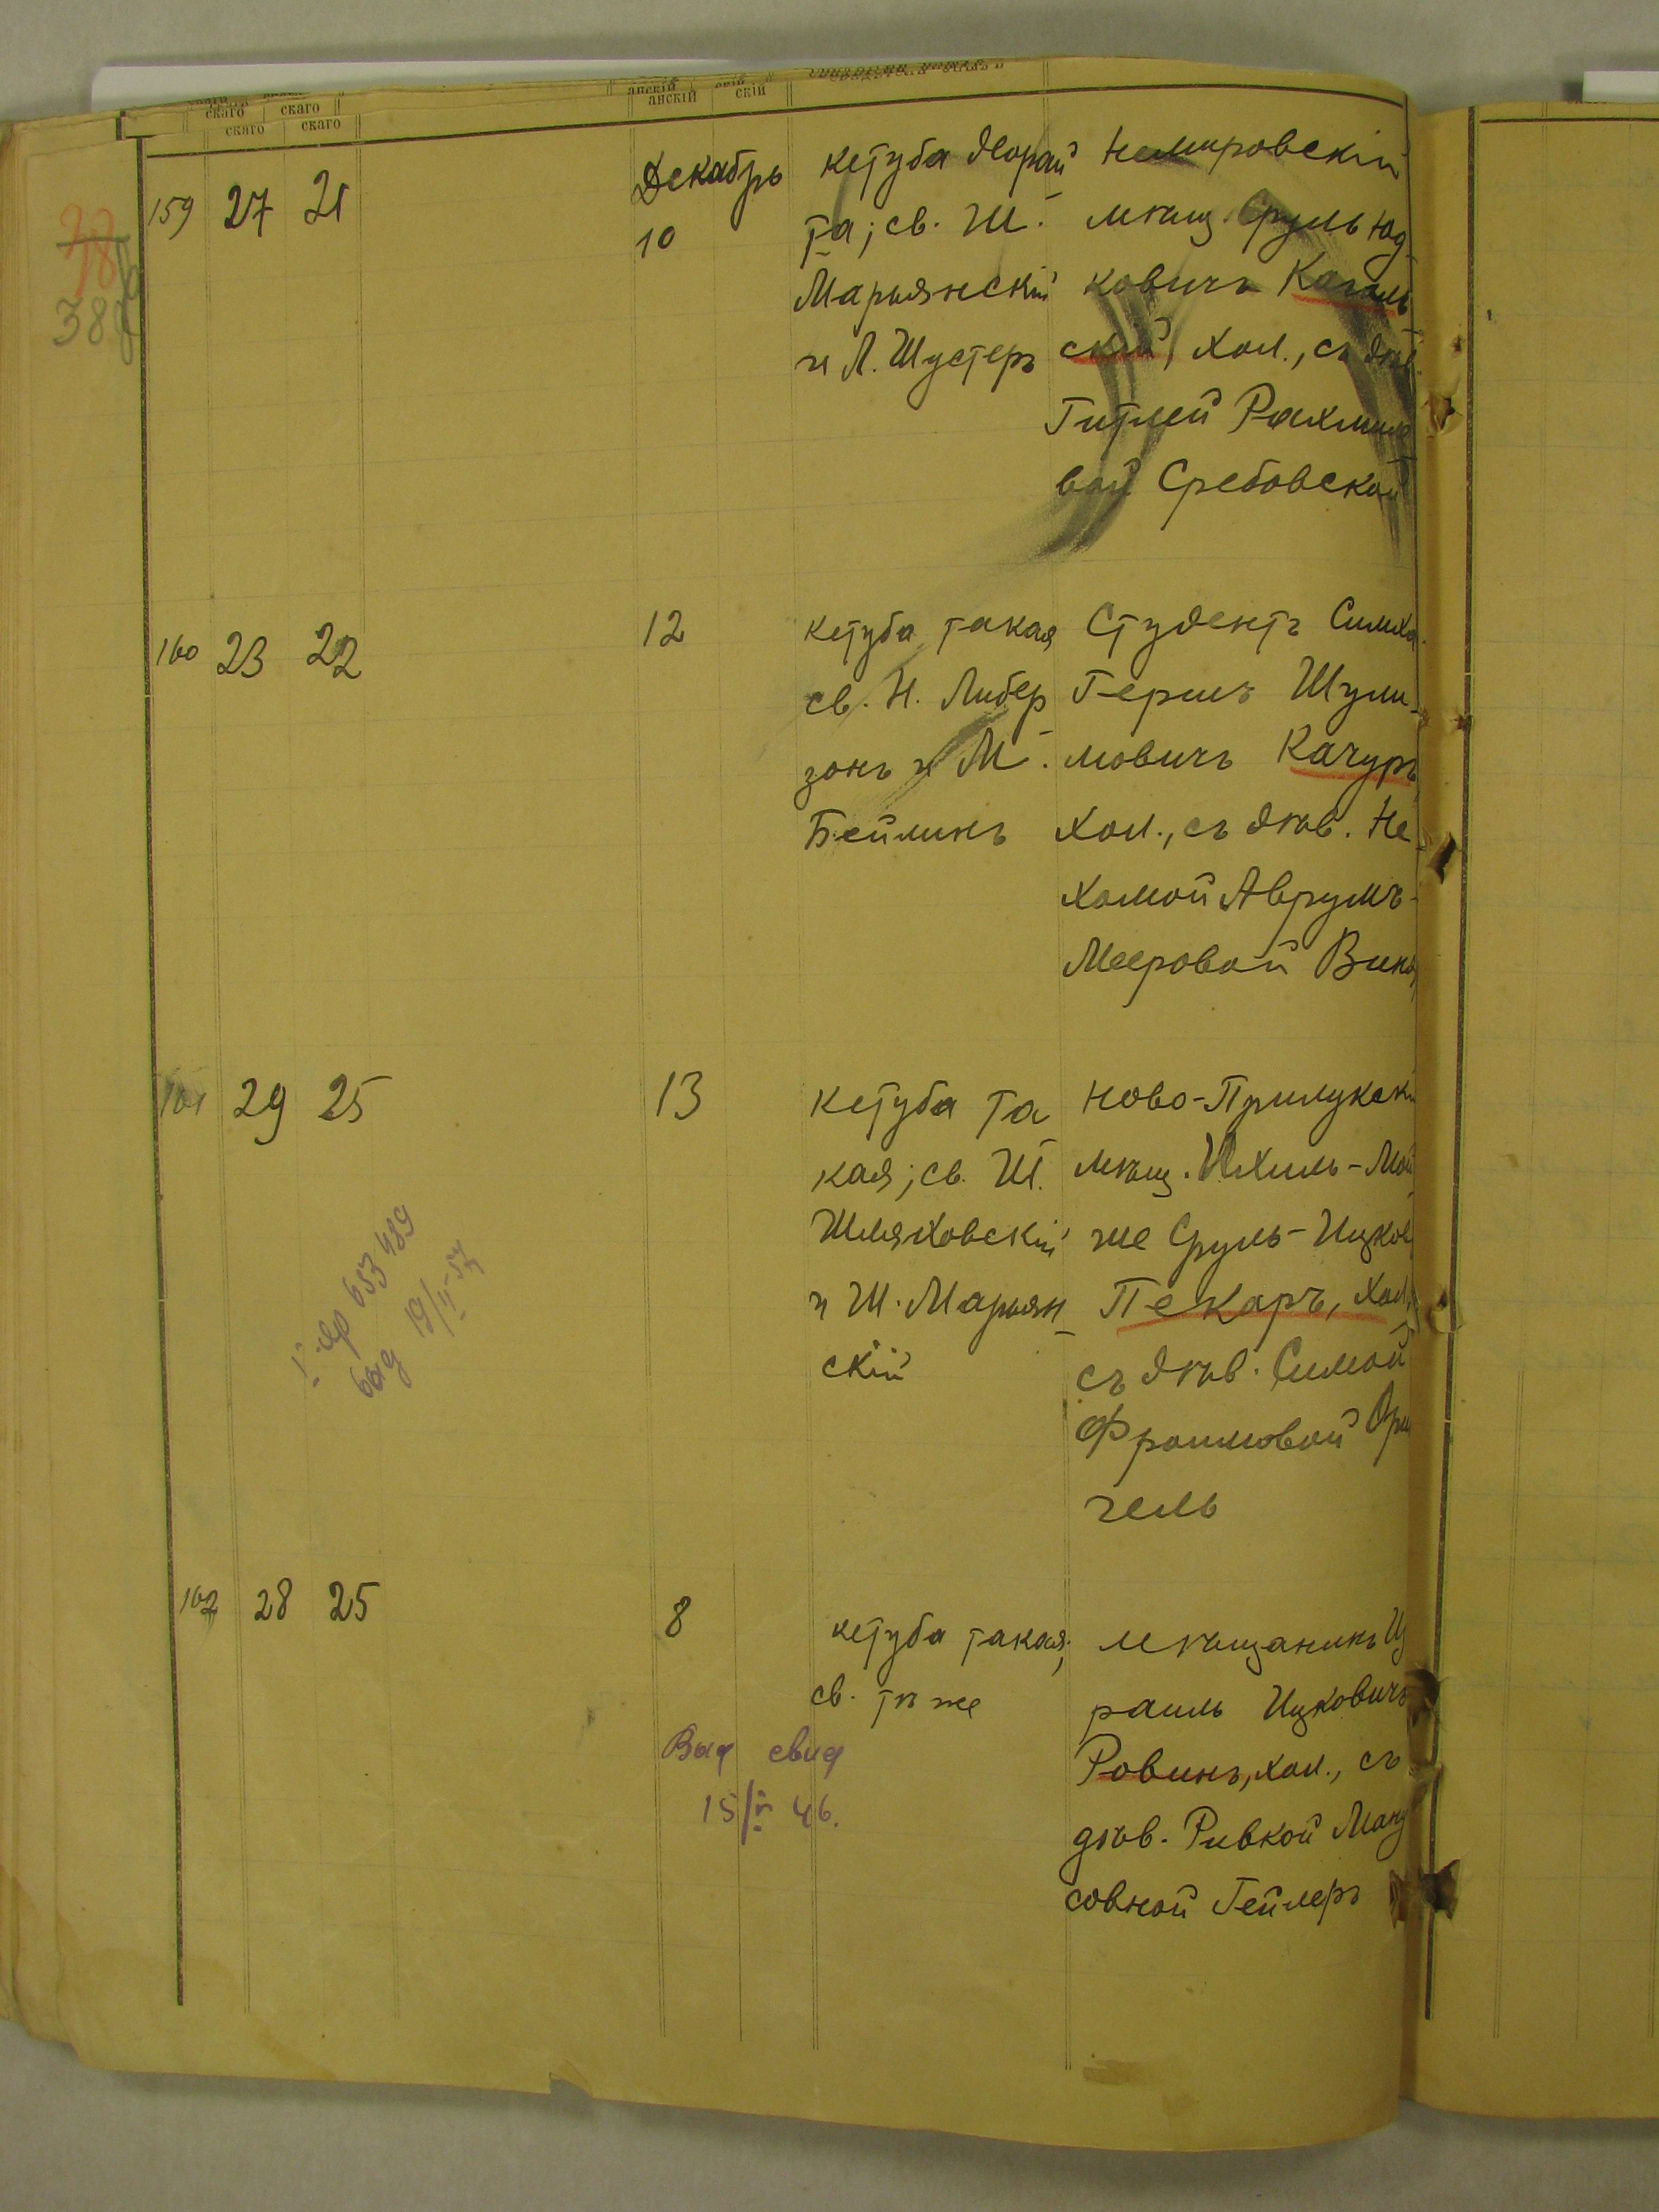 скаго скаго анскій скій
159 27 21 Декабрь 10
кетуба деорай
та; св. Ш.
Марьянскій
и Л. Шустеръ
Немировскій
мѣщ. Сруль Юд
ковичъ Кагаль
скій, хол., съ дѣв.
Гитлей Рахмиле
вой Сребовской
160 23 22 12
кетуба такая
св. Н. Либер
зонъ и М.
Бейлинъ
Студентъ Симха
Гершъ Шули
мовичъ Качуръ
хол., съ дѣв. Не
хамой Аврумъ-
Мееровой
161 29 25 13
кетуба та
кая; св. Ш.
Шляховскій
и Ш. Марьян
скій
Ново-Прилукскі
мѣщ. Ихиль-Мой
ше Сруль-Ицков
Пекарь, хол.,
съ дѣв. Симой
Фроимовой
гель
162 28 25 8
кетуба такая;
св. тѣ же
мѣщанинъ Из
раиль Ицковичъ
Ровинъ, хол., съ
дѣв. Ривкой
совной Гейлеръ
653489
19/II-57
свид
15/II 46.